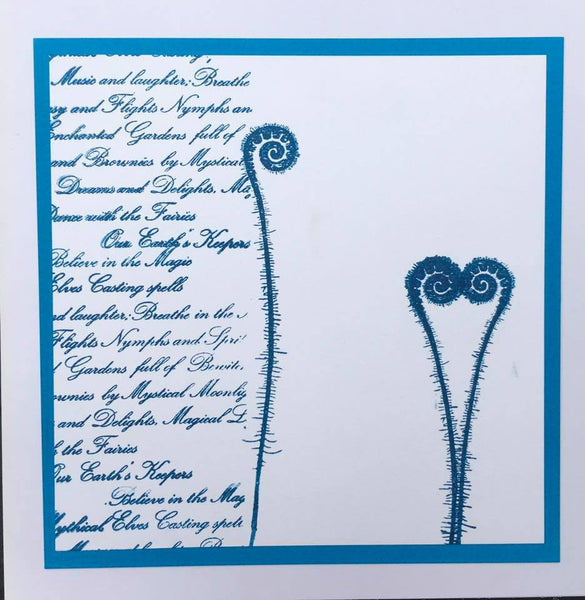 Casting,
Music and laughter; Breathe
and Flights Nymphs an
Enchanted Gardens full of
and Brownies by Mystical
Dreams and Delights, Ma
Dance with the Fairies
Our Earth's Keepers
Believe in the Magic
Elves Casting spells
nd laughter; Breathe in the
Flights Nymphs and Spri
l Gardens full of Bewitc
ownies by Mystical Moonlig
and Delights, Magical L
the Fairies
Our Earth's Keepers
Believe in the Mag
Mythical Elves Casting spells